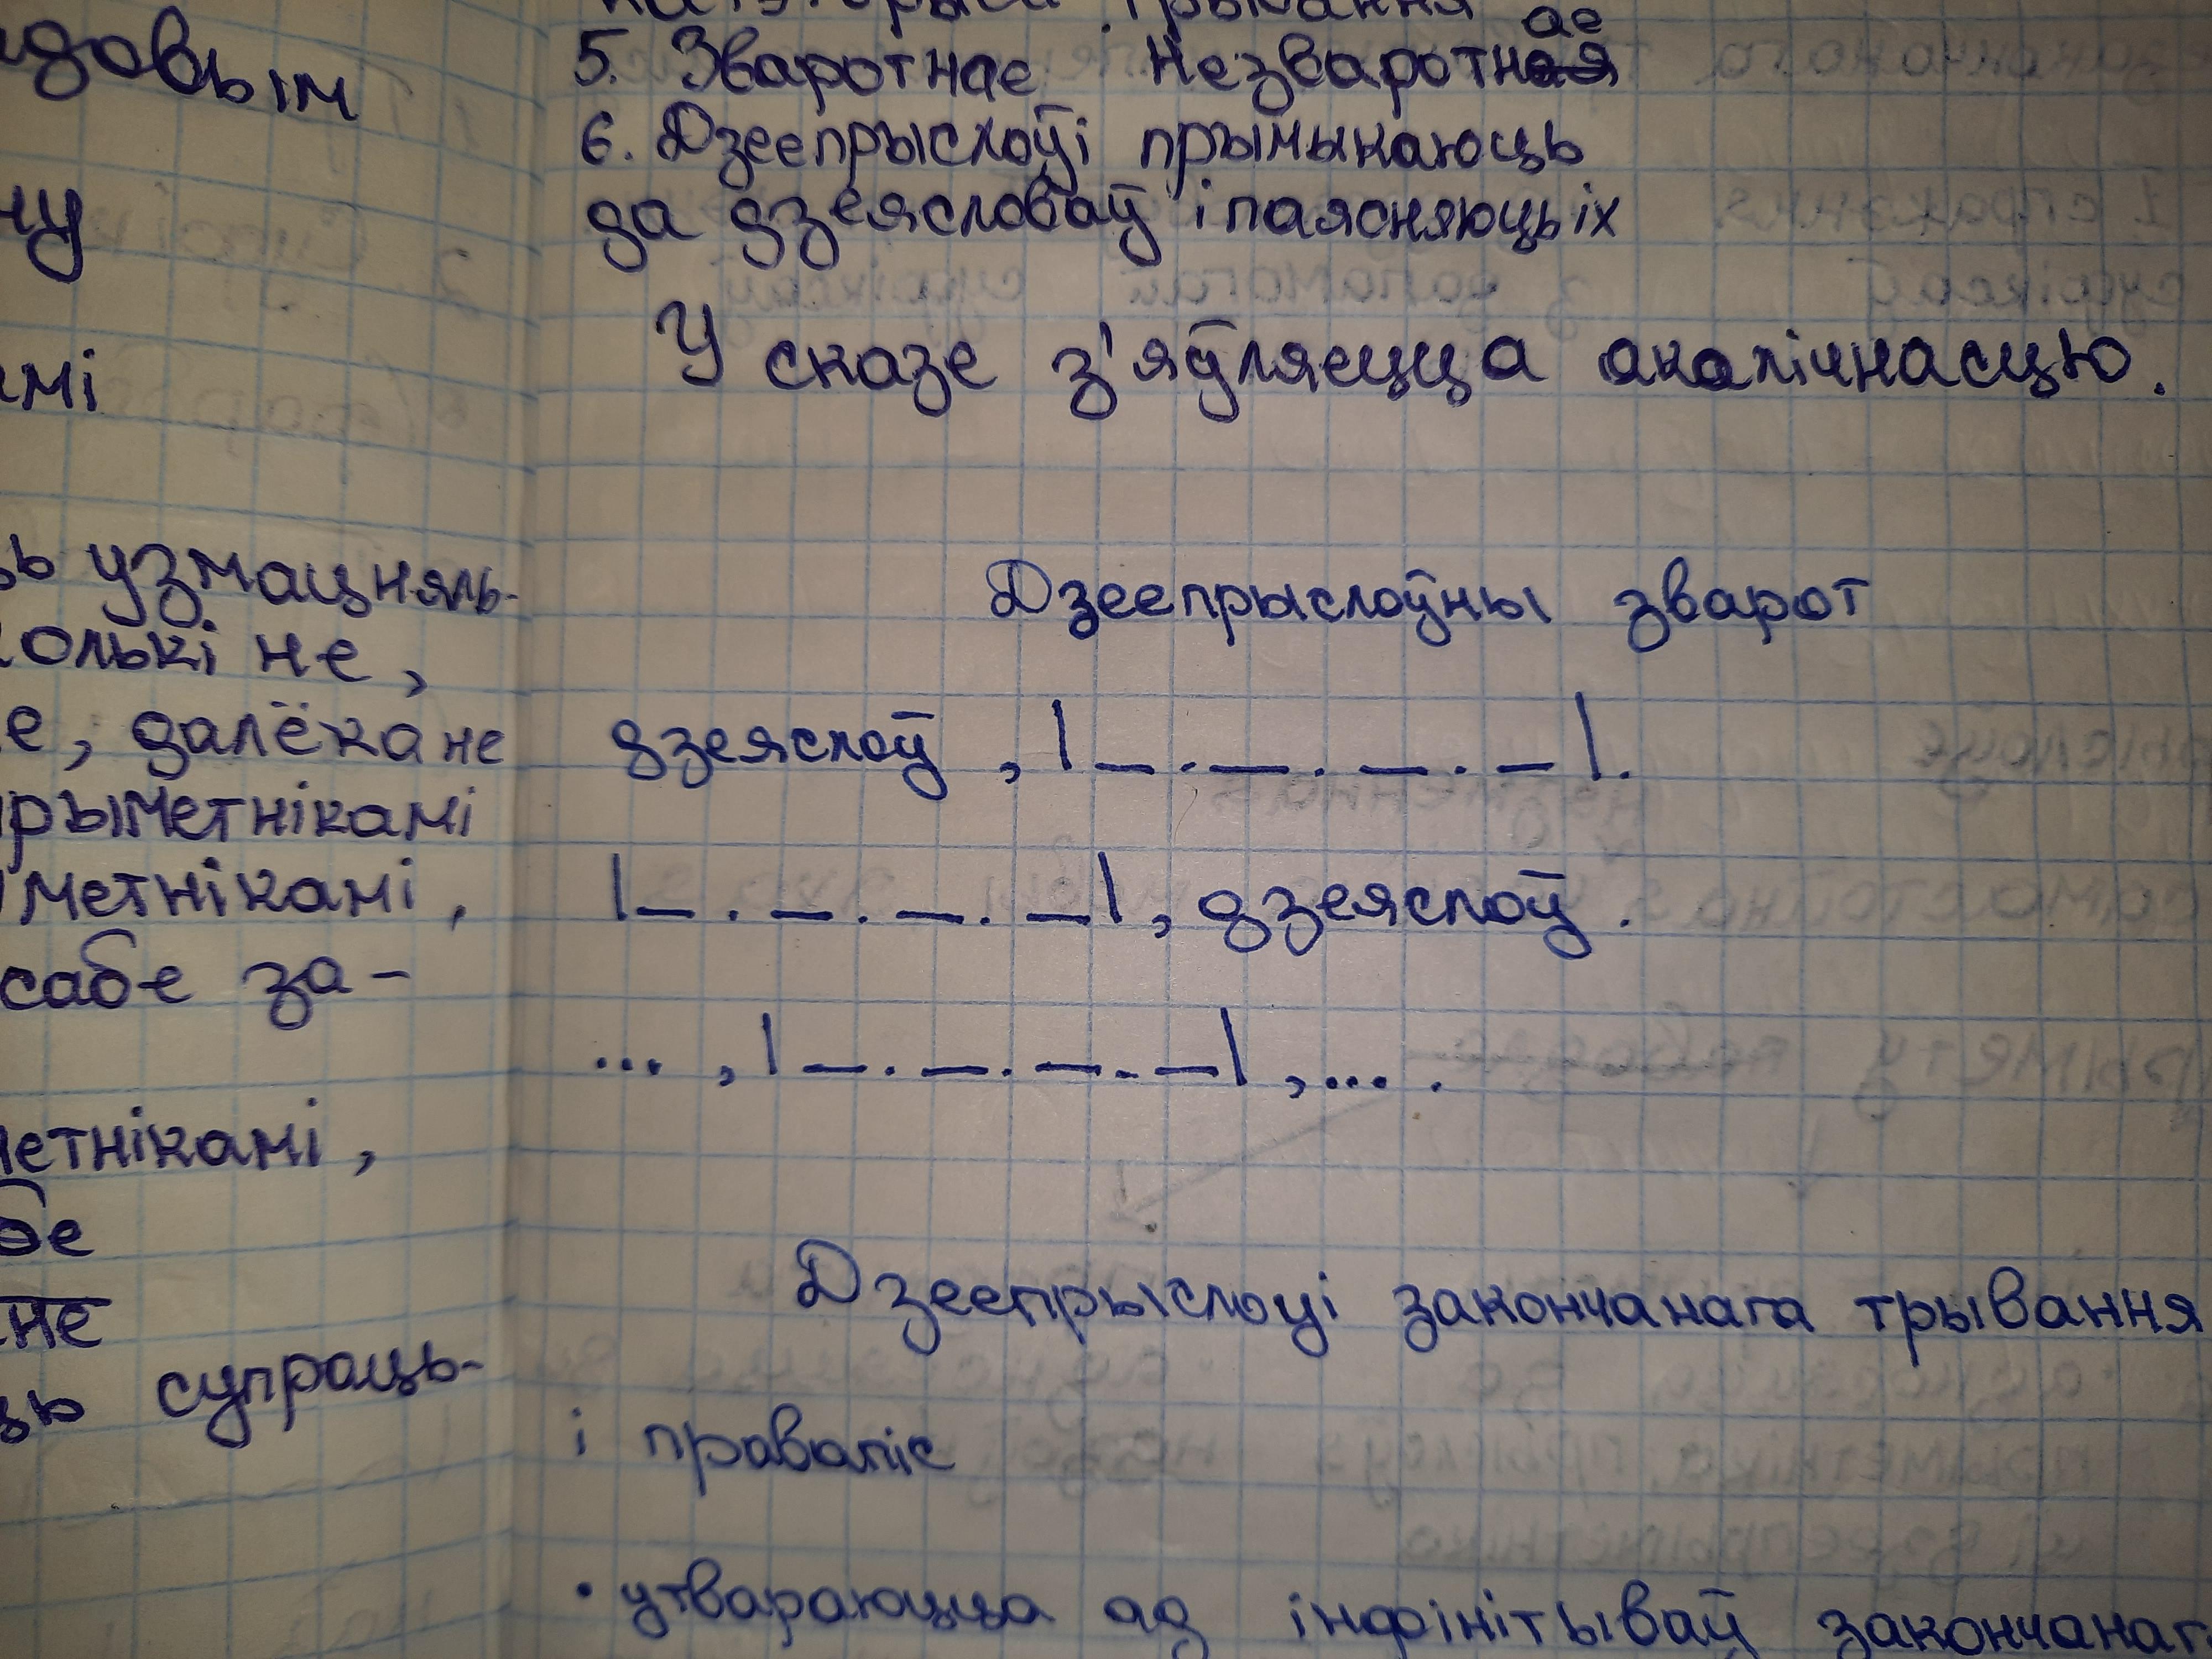 довым
5. Зваротнае Незваротнае
6. Дзеепрыслоўі прымыкаюць
да дзеясловаў і паясняюць іх
У сказе з'яўляецца акалічнасцю.
Дзеепрыслоўны зварот
дзеяслоў , |_._._._|.
|_._._._|, дзеяслоў.
... , |_._._._| , ... .
Дзеепрыслоўі закончанага трывання
і правапіс
• утвараюцца ад інфінітываў закончанаг
чу
амі
ь узмацняль-
олькі не,
е, далёка не
рыметнікамі
метнікамі,
сабе за-
метнікамі,
бе
не
ць супраць-